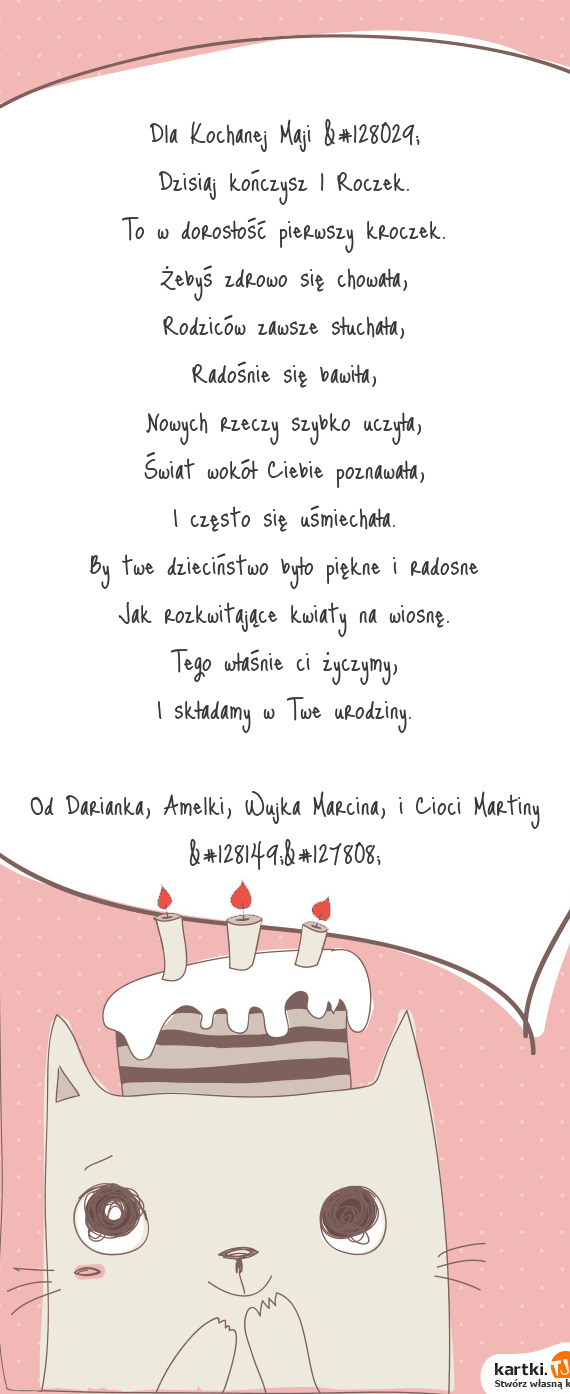 Dla Kochanej Maji &#128029;
Dzisiaj kończysz 1 Roczek.
To w dorosłość pierwszy kroczek.
Żebyś zdrowo się chowała,
Rodziców zawsze słuchała,
Radośnie się bawiła,
Nowych rzeczy szybko uczyła,
Świat wokół Ciebie poznawała,
I często się uśmiechała.
By twe dzieciństwo było piękne i radosne
Jak rozkwitające kwiaty na wiosnę.
Tego właśnie ci życzymy,
I składamy w Twe urodziny.
Od Darianka, Amelki, Wujka Marcina, i Cioci Martiny
&#128149;&#127808;
kartki.TJ
Stwórz własną k